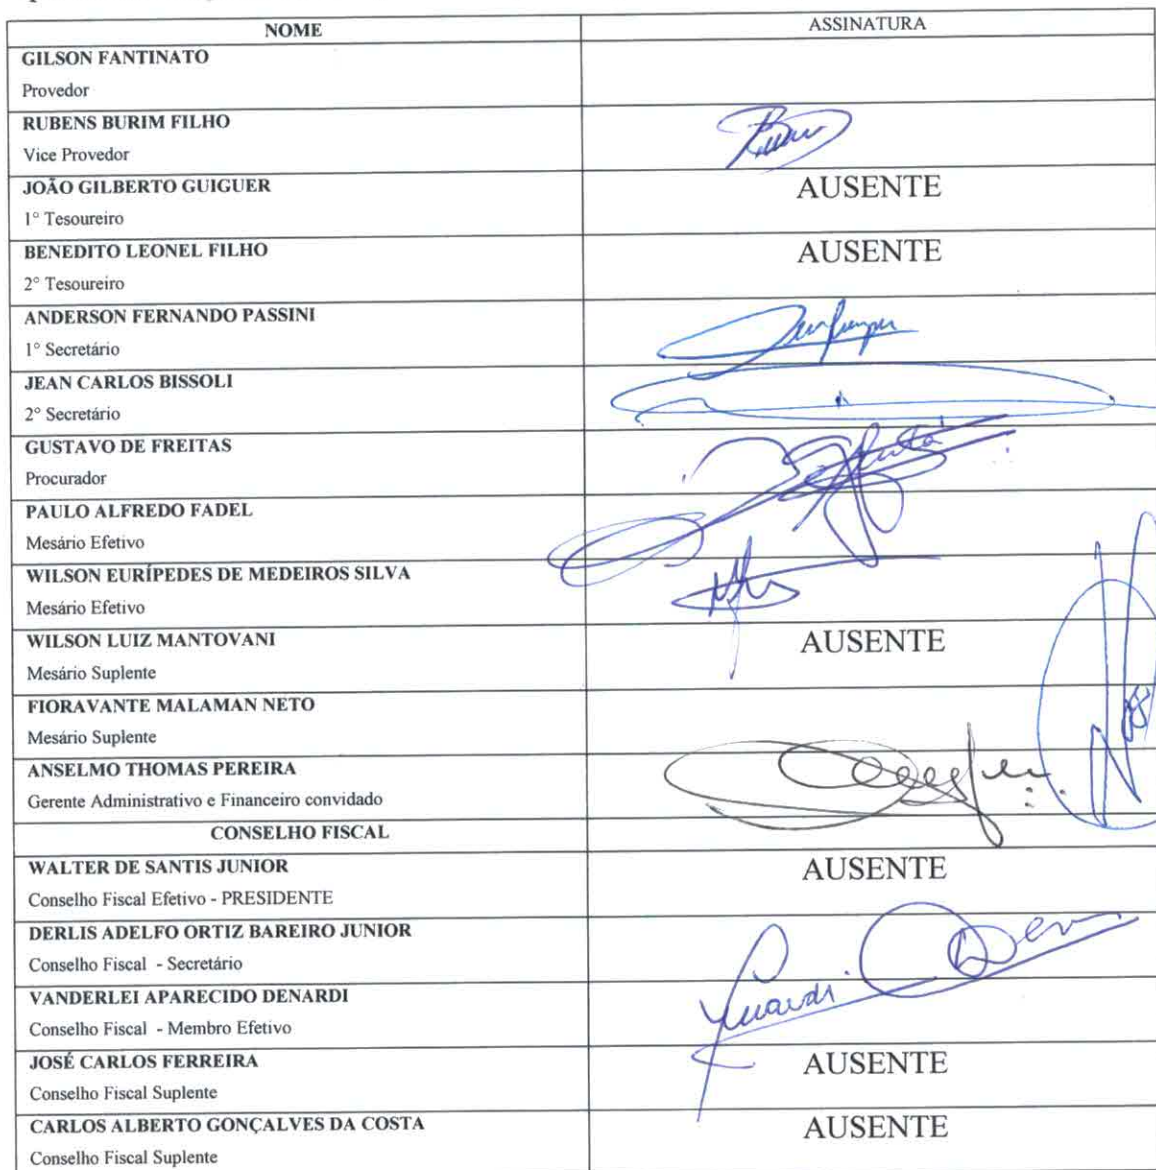 NOME ASSINATURA
GILSON FANTINATO
Provedor
RUBENS BURIM FILHO
Vice Provedor
JOÃO GILBERTO GUIGUER AUSENTE
1° Tesoureiro
BENEDITO LEONEL FILHO AUSENTE
2° Tesoureiro
ANDERSON FERNANDO PASSINI
1° Secretário
JEAN CARLOS BISSOLI
2° Secretário
GUSTAVO DE FREITAS
Procurador
PAULO ALFREDO FADEL
Mesário Efetivo
WILSON EURÍPEDES DE MEDEIROS SILVA
Mesário Efetivo
WILSON LUIZ MANTOVANI AUSENTE
Mesário Suplente
FIORAVANTE MALAMAN NETO
Mesário Suplente
ANSELMO THOMAS PEREIRA
Gerente Administrativo e Financeiro convidado
CONSELHO FISCAL
WALTER DE SANTIS JUNIOR AUSENTE
Conselho Fiscal Efetivo - PRESIDENTE
DERLIS ADELFO ORTIZ BAREIRO JUNIOR
Conselho Fiscal - Secretário
VANDERLEI APARECIDO DENARDI
Conselho Fiscal - Membro Efetivo
JOSÉ CARLOS FERREIRA AUSENTE
Conselho Fiscal Suplente
CARLOS ALBERTO GONÇALVES DA COSTA AUSENTE
Conselho Fiscal Suplente